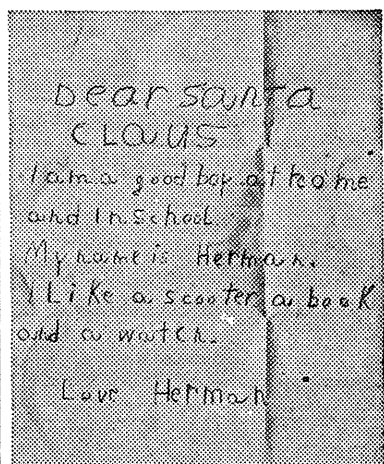 Dear Santa
Claus
I am a good boy at home
and in school
My name is Herman.
I Like a scooter a book
and a watch.
Love Herman